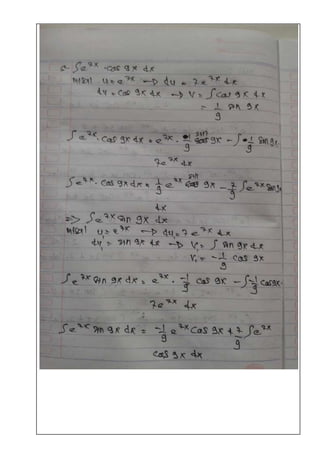 a. ∫ e^7x · cos 9x dx
misal u = e^7x → du = 7e^7x dx
dv = cos 9x dx → v = ∫ cos 9x dx
= 1/9 sin 9x
∫ e^7x · cos 9x dx = e^7x · 1/9 sin 9x - ∫ 1/9 sin 9x
7e^7x dx
∫ e^7x · cos 9x dx = 1/9 e^7x sin 9x - 7/9 ∫ e^7x sin 9x
dx
=> ∫ e^7x sin 9x dx
misal u = e^7x → du = 7e^7x dx
dv = sin 9x dx → v = ∫ sin 9x dx
v = -1/9 cos 9x
∫ e^7x sin 9x dx = e^7x · -1/9 cos 9x - ∫ -1/9 cos 9x ·
7e^7x dx
∫ e^7x sin 9x dx = -1/9 e^7x cos 9x + 7/9 ∫ e^7x
cos 9x dx